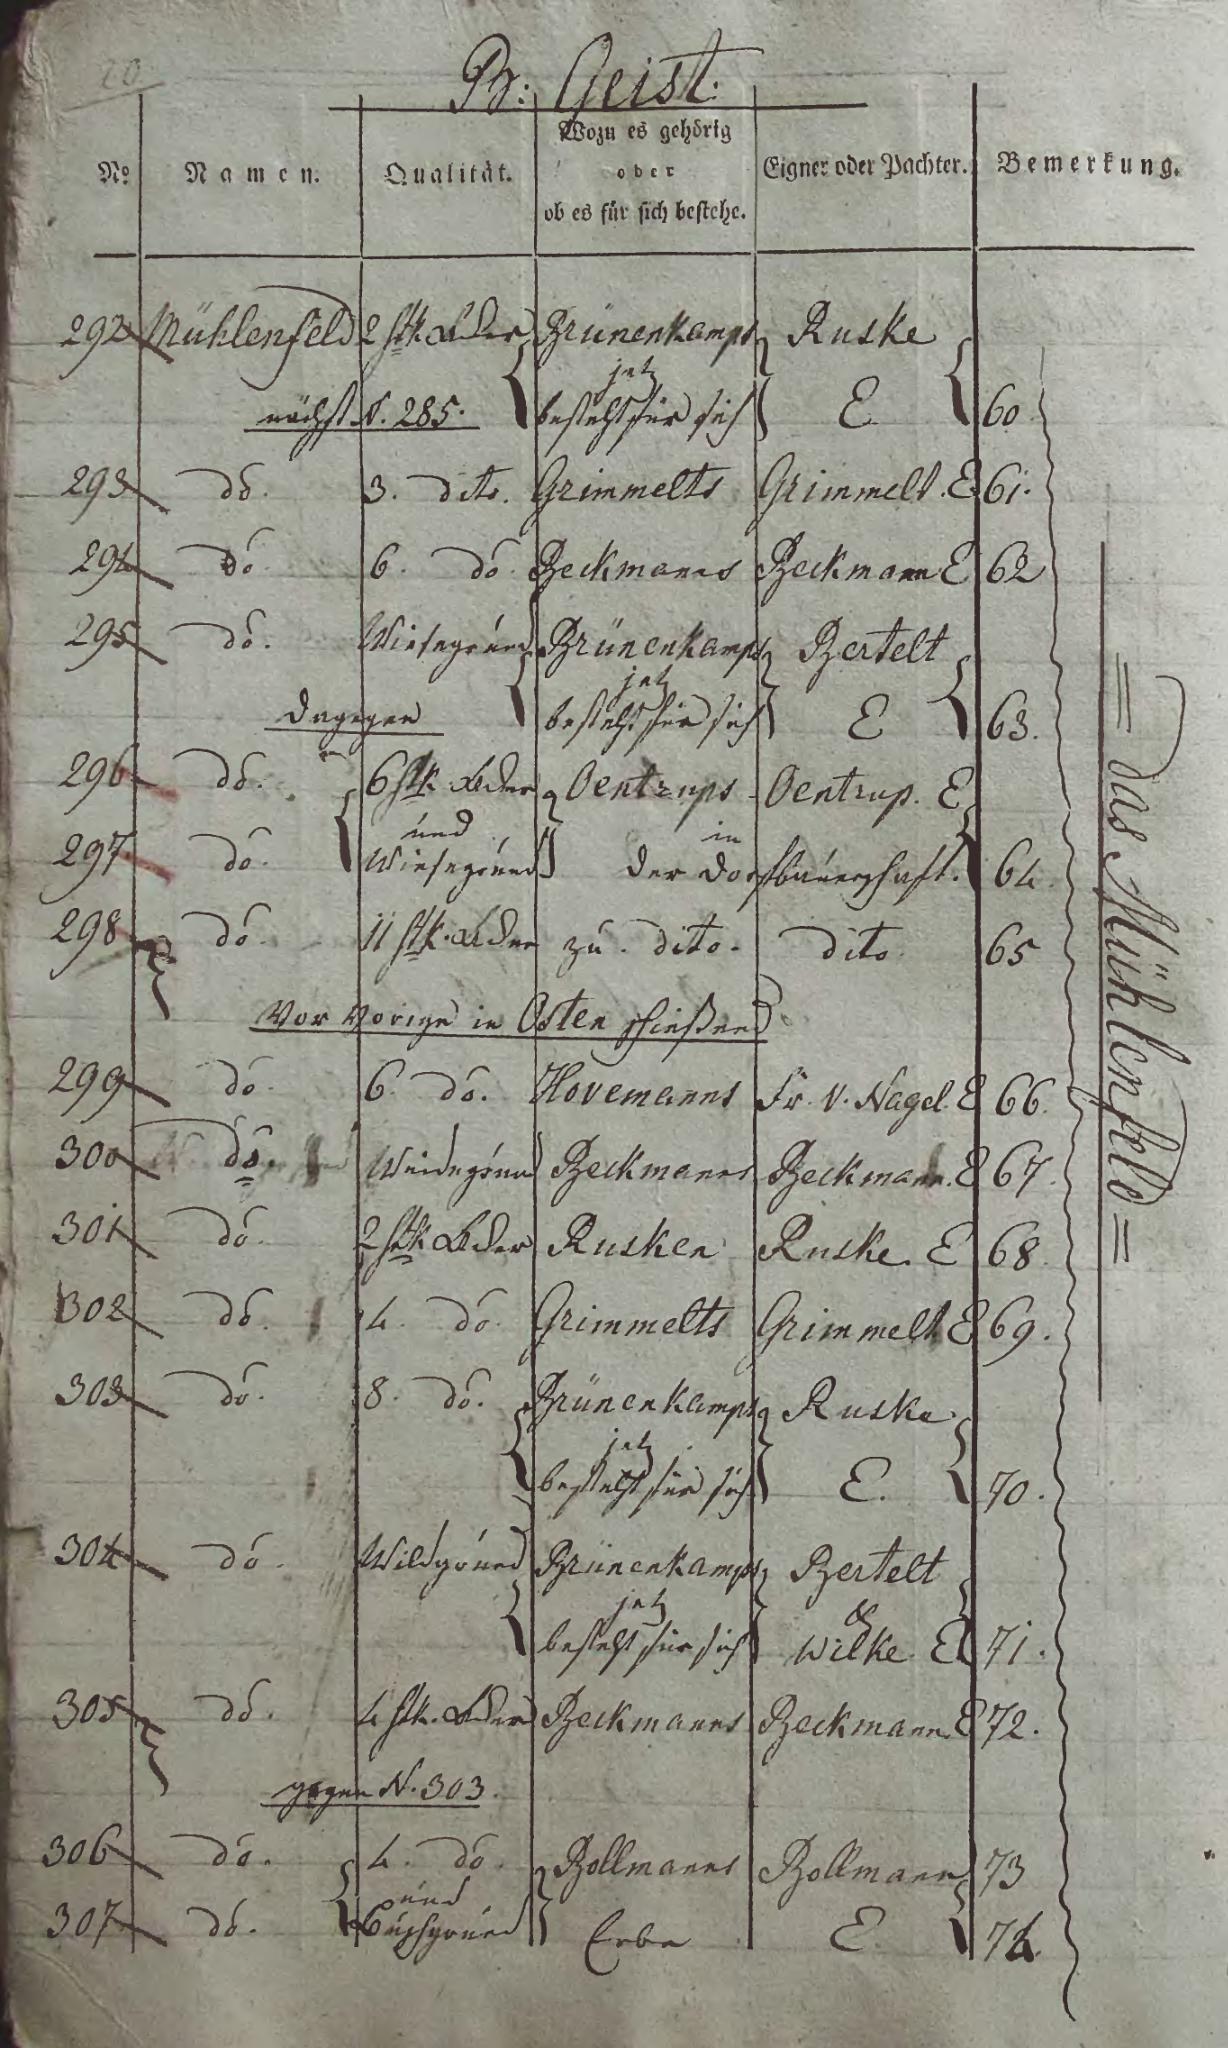 20
B: Geist.
No Namen. Qualität. Wozu es gehörig oder ob es für sich bestehe. Eigner oder Pachter. Bemerkung.
292 Mühlenfeld 2 Stk. Acker Brünenkamps Ruske
jetz
nächst N. 285. besteht für sich E 60
293 do. 3. dito. Grimmelts Grimmelt. E 61.
294 do 6. do. Beckmanns Beckmann E 62
295 do. Wiesegrund Brünenkamps Bertelt
jetz
dagegen besteht für sich E 63.
296 do. 6 Stk. Acker Oentrups Oentrup. E
und in
297 do. Wiesegrund der Dorfbauerschaft. 64.
298 do. 11 Stk. Acker zu dito. dito. 65
Vor Vorige in Osten schießend
299 do. 6. do. Hovemanns Fr. v. Nagel. E 66.
300 do. Weidegrund Beckmanns Beckmann. E 67.
301 do. 2 Stk Acker Rusken Ruske. E 68.
302 do. 4. do. Grimmelts Grimmelt E 69.
303 do. 8. do. Brünenkamps Ruske
jetz
besteht für sich E. 70.
304 do. Wildgrund Brünenkamps Bertelt
jetz &
besteht für sich Wilke E 71.
305 do. 4 Stk. Acker Beckmanns Beckmann. E 72.
gegen N. 303.
306 do. 4. do. Bollmanns Bollmann 73
und
307 do. Buschgrund Erbe E 74.
= das Mühlenfeld =